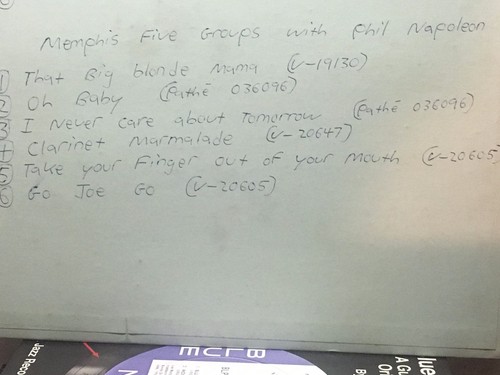 Memphis Five Groups with Phil Napoleon
① That Big blonde Mama (V-19130)
② Oh Baby (Pathé 036096)
③ I Never care about Tomorrow (Pathé 036096)
④ Clarinet Marmalade (V-20647)
⑤ Take your Finger out of your Mouth (V-20605)
⑥ Go Joe Go (V-20605)
Jazz Reco
BLUE
N
BLP
lue
A Gu
On
By